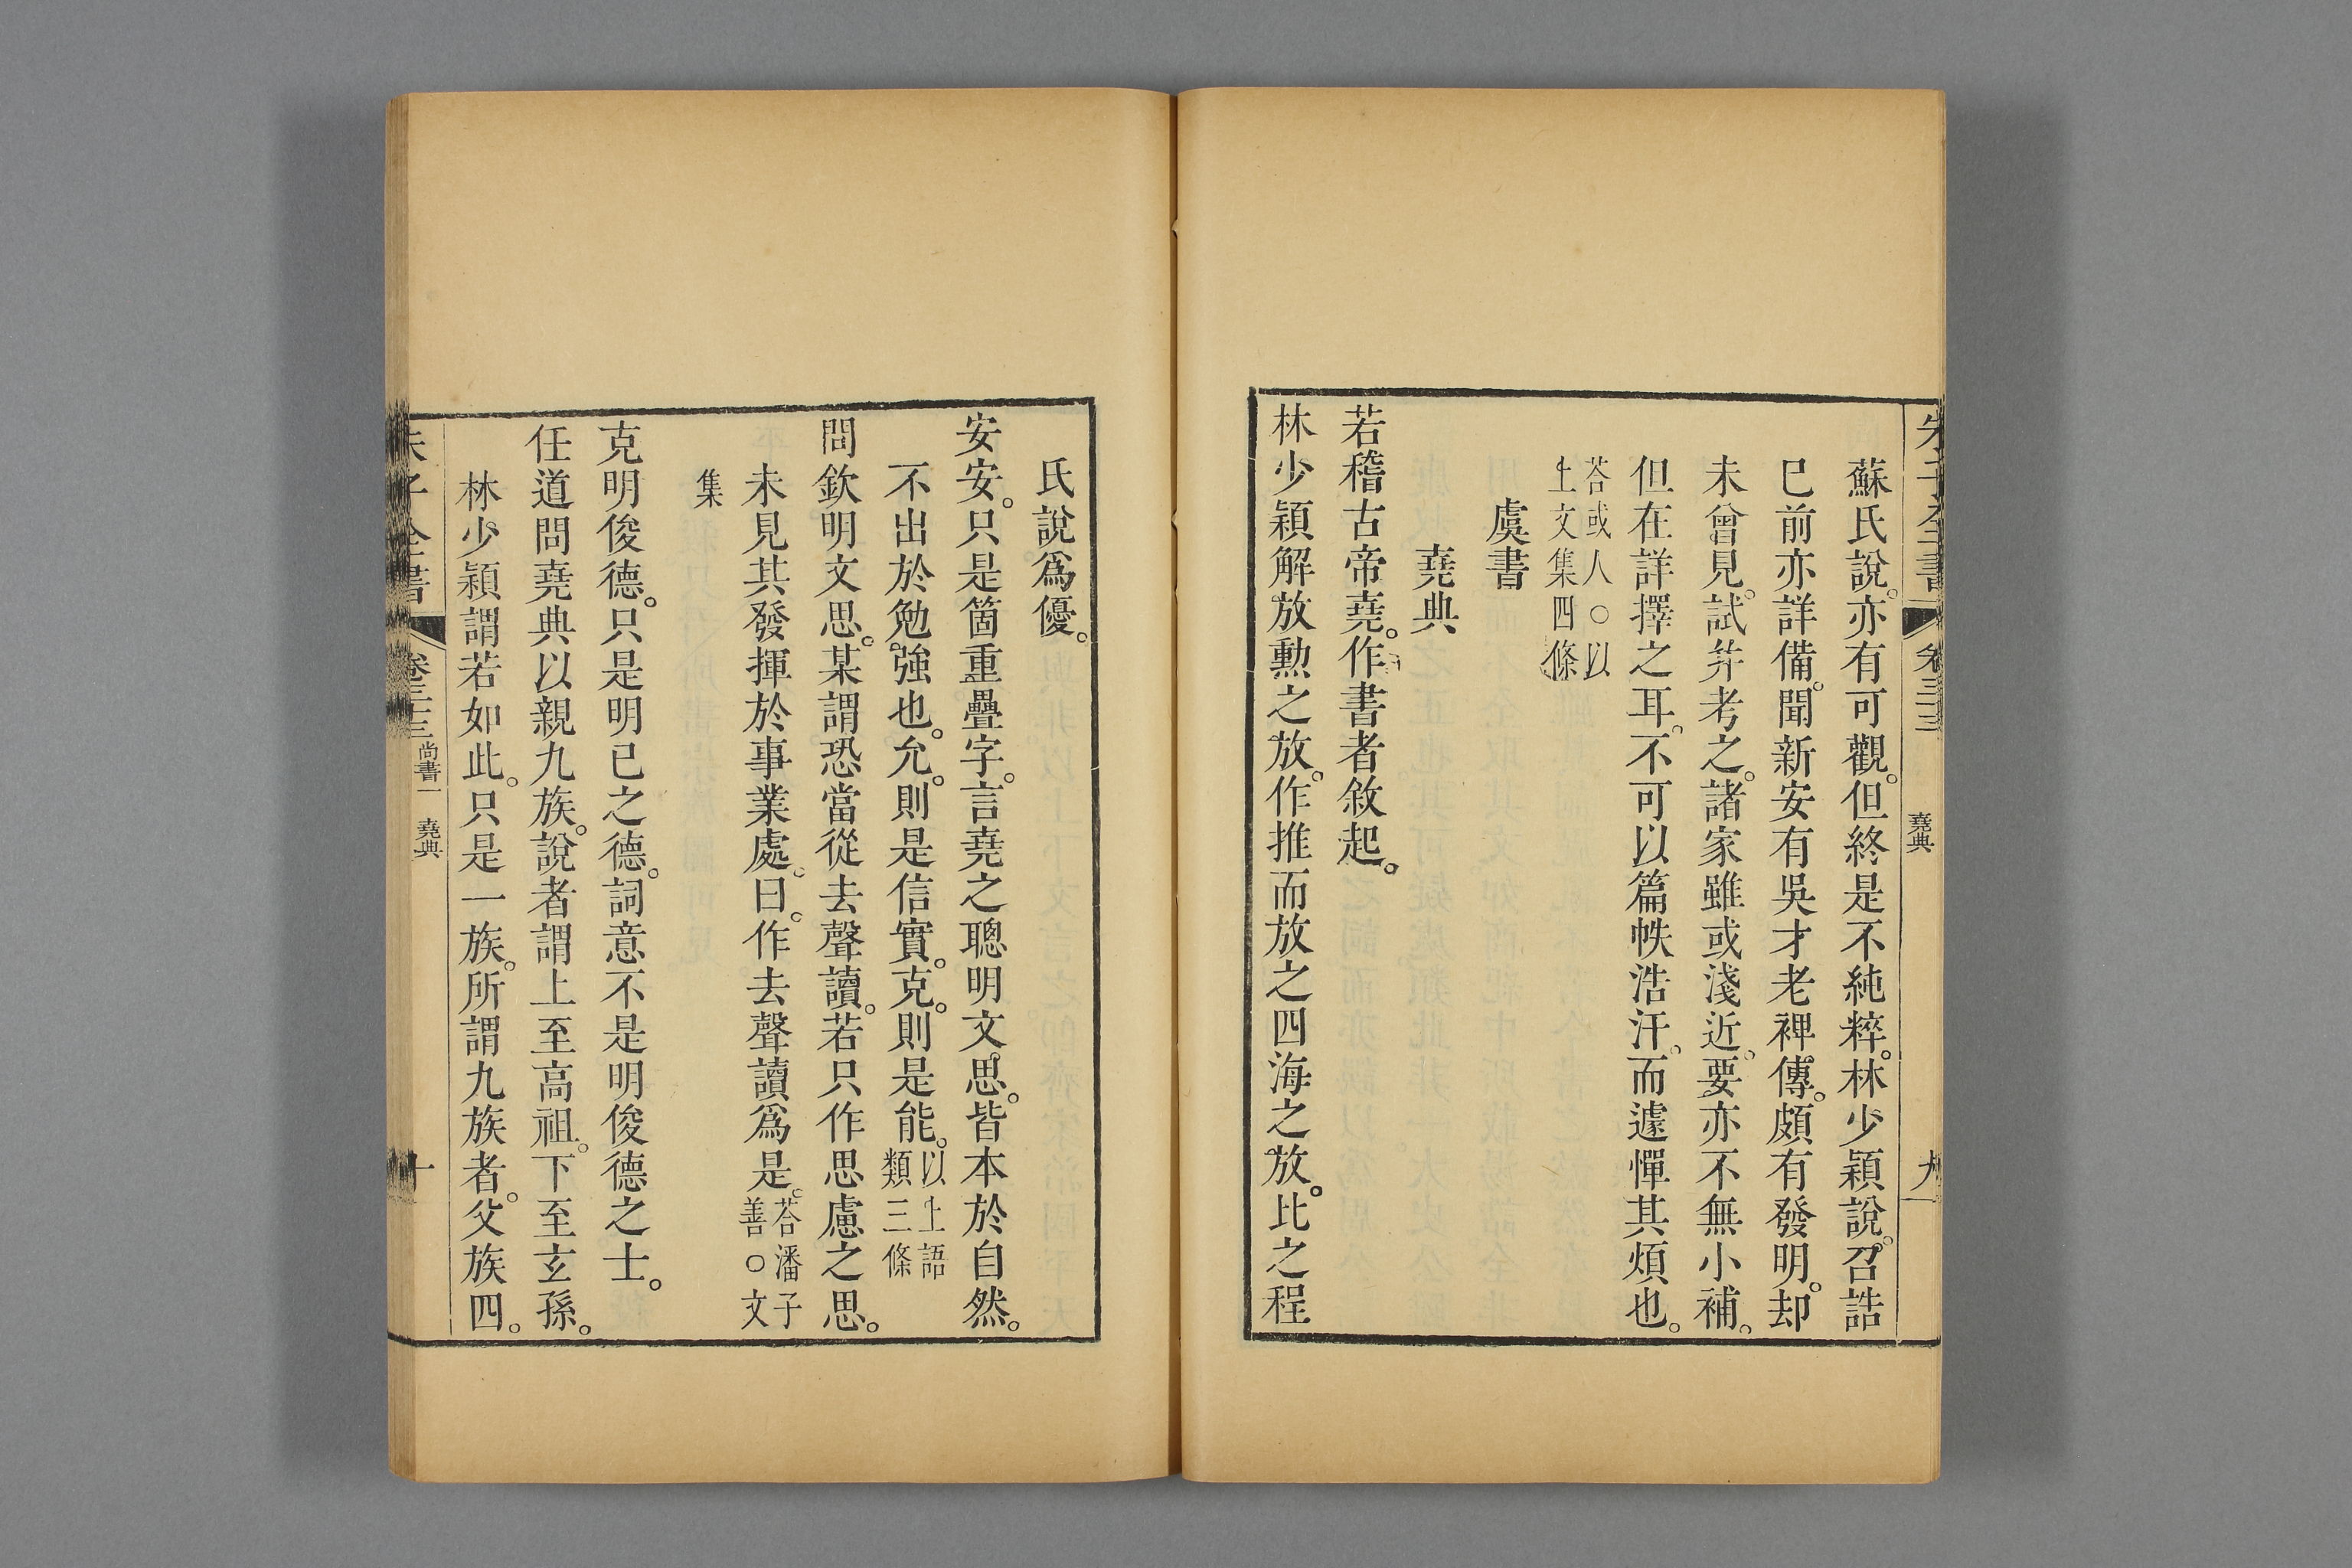 朱子全書 卷三十三 堯典 九
蘇氏說。亦有可觀。但終是不純粹。林少穎說。召誥
已前亦詳備。聞新安有吳才老裨傳。頗有發明。却
未曾見。試幷考之。諸家雖或淺近。要亦不無小補。
但在詳擇之耳。不可以篇帙浩汗。而遽憚其煩也。
荅或人○以
上文集四條
虞書
堯典
若稽古帝堯。作書者敘起。
林少穎解放勳之放。作推而放之四海之放。比之程
氏說爲優。
安安。只是箇重疊字。言堯之聰明文思。皆本於自然。
不出於勉強也。允。則是信實。克。則是能。以上語
類三條
問欽明文思。某謂恐當從去聲讀。若只作思慮之思。
未見其發揮於事業處。曰。作去聲讀爲是。荅潘子
善○文
集
克明俊德。只是明己之德。詞意不是明俊德之士。
任道問堯典以親九族。說者謂上至高祖。下至玄孫。
林少穎謂若如此。只是一族。所謂九族者。父族四。
朱子全書 卷三十三 尚書一 堯典 十